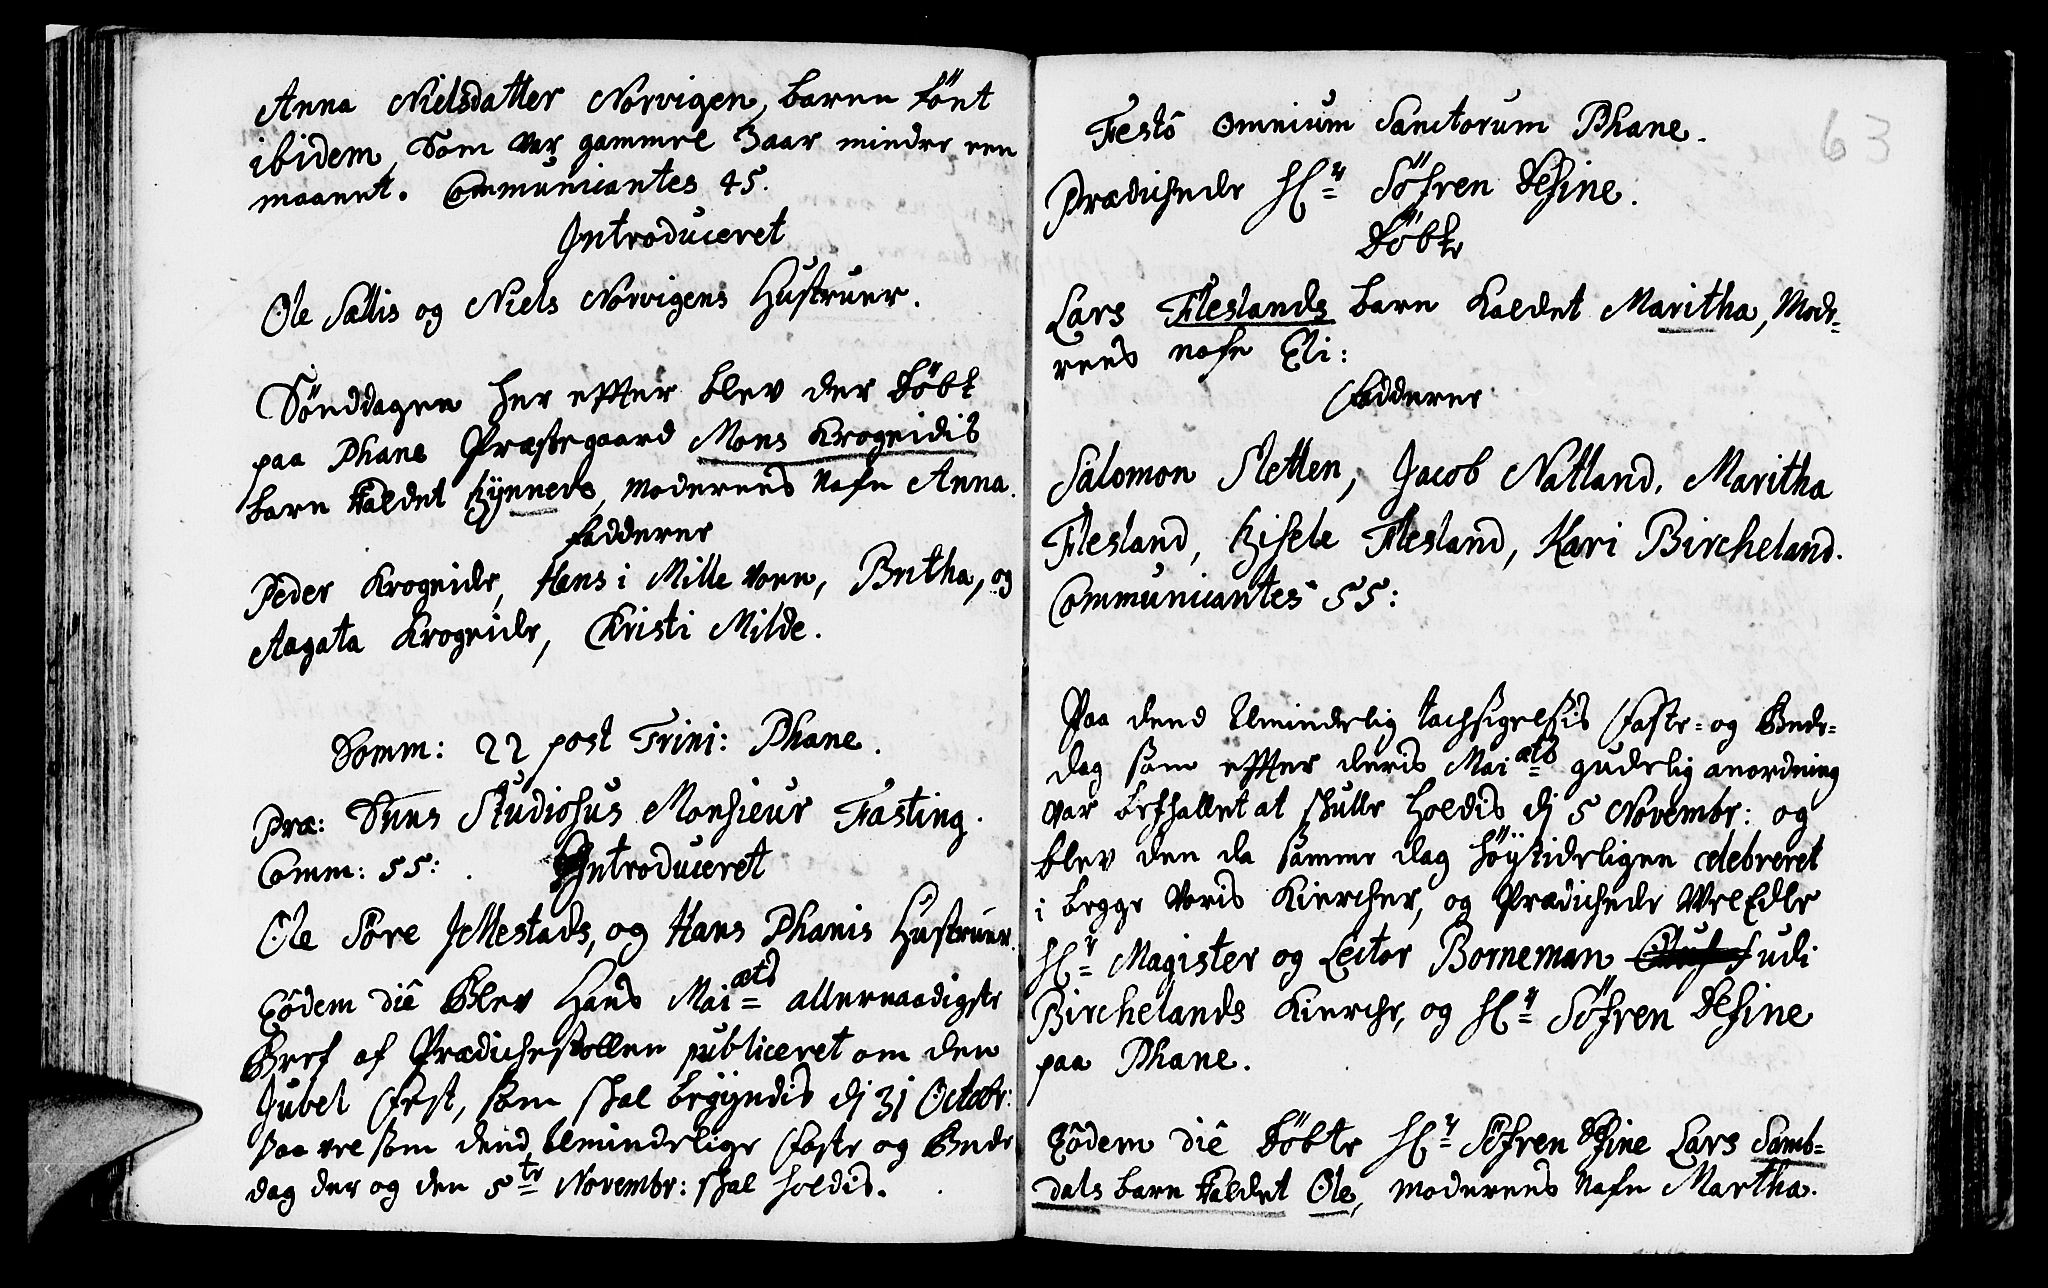 Anna Nielsdatter Norvigen, baaren fönt
ibidem, Som var gammel 3 aar mindre een
maanet. Communicantes 45.
Introduceret
Ole Sællis og Niels Norvigens Hustruer.
Sönddagen her effter blev der döbt
paa Phane Præstegaard Mons Krogeidis
barn kaldet , moderens Nafn Anna.
fadderne
Peder Krogeide, Hans i Mille Voen, Britha, og
Aagata Krogeide, Kristi Milde.
Domm: 22 post Trini: Phane.
Præ: Studiosus Monsieur Fasting.
Comm: 55: Introduceret
Ole Söre Jllestads, og Hans Phanis Hustruer.
Eôdem diê Blev Hans Mai<sup>æts</sup> allernaadigste
Bref af Prædichestollen publiceret om den
Jubel Fest, som skal begyndis dj 31 Octobr:
saa vel som dend almindelige faste og Bede
dag der og den 5<sup>te</sup> Novembr: skal holdis.
63
Festô Omnium Sanctorum Phane.
Prædichede Hr. Söfren Hesine.
Döbte
Lars Fleslands barn kaldet Maritha, Mode-
rens nafn Eli:
Fadderne
Salomon Sletten, Jacob Natland, Maritha
Flesland, Gisele Flesland, Kari Bircheland.
Communicantes 55:
Paa dend Almindelig tachsigelsis Faste- og Bede-
dag som effter deris Mai<sup>æts</sup> gudelig anordning
var befhallet at skulle holdis dj 5 Novembr: og
blev den da samme dag höÿtideligen celebreret
i begge Voris Kiercher, og Prædichede VelEdle
Hr. Magister og Lector Borneman udi
Birchelands Kierche, og Hr. Söfren Hesine
paa Phane.
Eôdem diê döbte Hr. Söfren Hesine Lars Samb-
dals barn kaldet Ole, moderens Nafn Martha.